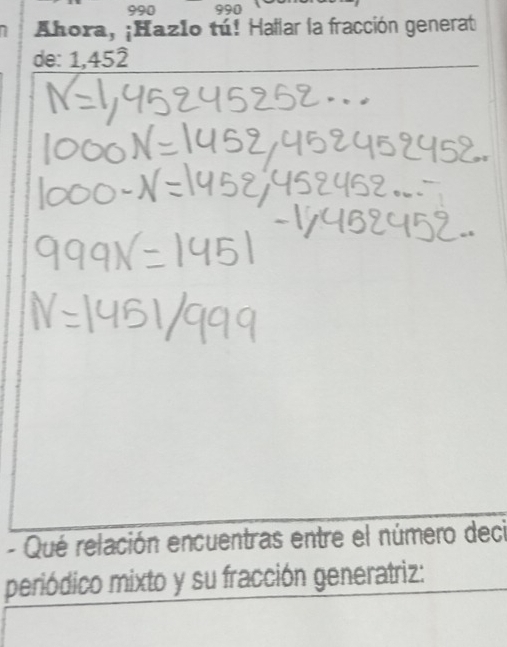 990 990
Ahora, ¡Hazlo tú! Hallar la fracción generat
de: 1,452̂
N=1,45245252...
1000N=1452,452452452..
1000-N=1452,452452...-
-1,452452..
999N=1451
N=1451/999
- Qué relación encuentras entre el número deci
periódico mixto y su fracción generatriz: